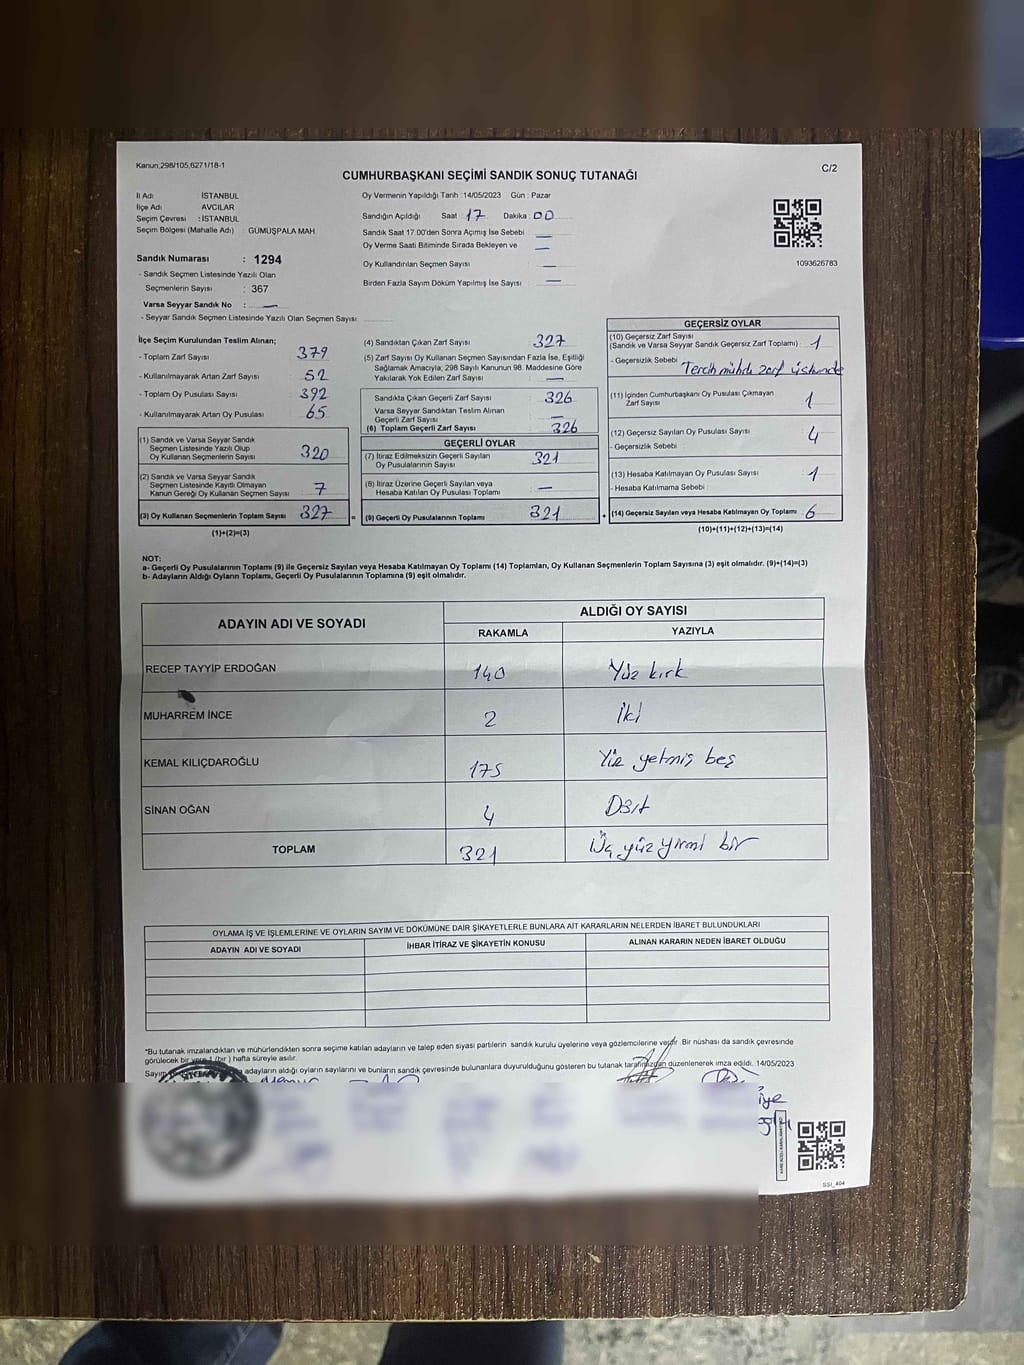 Kanun:298/105,6271/18-1
C/2
CUMHURBAŞKANI SEÇİMİ SANDIK SONUÇ TUTANAĞI
İl Adı : İSTANBUL
İlçe Adı : AVCILAR
Seçim Çevresi : İSTANBUL
Seçim Bölgesi (Mahalle Adı) : GÜMÜŞPALA MAH.
Sandık Numarası : 1294
- Sandık Seçmen Listesinde Yazılı Olan
Seçmenlerin Sayısı : 367
Varsa Seyyar Sandık No : —
- Seyyar Sandık Seçmen Listesinde Yazılı Olan Seçmen Sayısı:
Oy Vermenin Yapıldığı Tarih :14/05/2023 Gün : Pazar
Sandığın Açıldığı Saat : 17 Dakika : 00
Sandık Saat 17:00'den Sonra Açımış İse Sebebi —
Oy Verme Saati Bitiminde Sırada Bekleyen ve —
Oy Kullandırılan Seçmen Sayısı —
Birden Fazla Sayım Döküm Yapılmış İse Sayısı —
1093626783
İlçe Seçim Kurulundan Teslim Alınan;
- Toplam Zarf Sayısı 379
- Kullanılmayarak Artan Zarf Sayısı 52
- Toplam Oy Pusulası Sayısı 392
- Kullanılmayarak Artan Oy Pusulası 65
(1) Sandık ve Varsa Seyyar Sandık
Seçmen Listesinde Yazılı Olup
Oy Kullanan Seçmenlerin Sayısı 320
(2) Sandık ve Varsa Seyyar Sandık
Seçmen Listesinde Kayıtlı Olmayan
Kanun Gereği Oy Kullanan Seçmen Sayısı 7
(3) Oy Kullanan Seçmenlerin Toplam Sayısı 327
(1)+(2)=(3)
=
(4) Sandıktan Çıkan Zarf Sayısı 327
(5) Zarf Sayısı Oy Kullanan Seçmen Sayısından Fazla İse, Eşitliği
Sağlamak Amacıyla; 298 Sayılı Kanunun 98. Maddesine Göre
Yakılarak Yok Edilen Zarf Sayısı —
Sandıkta Çıkan Geçerli Zarf Sayısı 326
Varsa Seyyar Sandıktan Teslim Alınan
Geçerli Zarf Sayısı —
(6) Toplam Geçerli Zarf Sayısı 326
GEÇERLİ OYLAR
(7) İtiraz Edilmeksizin Geçerli Sayılan
Oy Pusulalarının Sayısı 321
(8) İtiraz Üzerine Geçerli Sayılan veya
Hesaba Katılan Oy Pusulası Toplamı —
(9) Geçerli Oy Pusulalarının Toplamı 321
+
GEÇERSİZ OYLAR
(10) Geçersiz Zarf Sayısı
(Sandık ve Varsa Seyyar Sandık Geçersiz Zarf Toplamı) 1
- Geçersizlik Sebebi Tercih mühdü zarf üstünde
(11) İçinden Cumhurbaşkanı Oy Pusulası Çıkmayan
Zarf Sayısı 1
(12) Geçersiz Sayılan Oy Pusulası Sayısı 4
- Geçersizlik Sebebi
(13) Hesaba Katılmayan Oy Pusulası Sayısı 1
- Hesaba Katılmama Sebebi :
(14) Geçersiz Sayılan veya Hesaba Katılmayan Oy Toplamı 6
(10)+(11)+(12)+(13)=(14)
NOT:
a- Geçerli Oy Pusulalarının Toplamı (9) ile Geçersiz Sayılan veya Hesaba Katılmayan Oy Toplamı (14) Toplamları, Oy Kullanan Seçmenlerin Toplam Sayısına (3) eşit olmalıdır. (9)+(14)=(3)
b- Adayların Aldığı Oyların Toplamı, Geçerli Oy Pusulalarının Toplamına (9) eşit olmalıdır.
ADAYIN ADI VE SOYADI ALDIĞI OY SAYISI
RAKAMLA YAZIYLA
RECEP TAYYİP ERDOĞAN 140 Yüz kırk
MUHARREM İNCE 2 İki
KEMAL KILIÇDAROĞLU 175 Yüz yetmiş beş
SİNAN OĞAN 4 Dört
TOPLAM 321 Üç yüz yirmi bir
OYLAMA İŞ VE İŞLEMLERİNE VE OYLARIN SAYIM VE DÖKÜMÜNE DAİR ŞİKAYETLERLE BUNLARA AİT KARARLARIN NELERDEN İBARET BULUNDUKLARI
ADAYIN ADI VE SOYADI İHBAR İTİRAZ VE ŞİKAYETİN KONUSU ALINAN KARARIN NEDEN İBARET OLDUĞU
*Bu tutanak imzalandıktan ve mühürlendikten sonra seçime katılan adayların ve talep eden siyasi partilerin sandık kurulu üyelerine veya gözlemcilerine verilir .Bir nüshası da sandık çevresinde
görülecek bir yere 1 (bir ) hafta süreyle asılır.
Sayım adayların aldığı oyların sayılarını ve bunların sandık çevresinde bulunanlara duyurulduğunu gösteren bu tutanak tarafımızdan düzenlenerek imza edildi. 14/05/2023
SSI_404